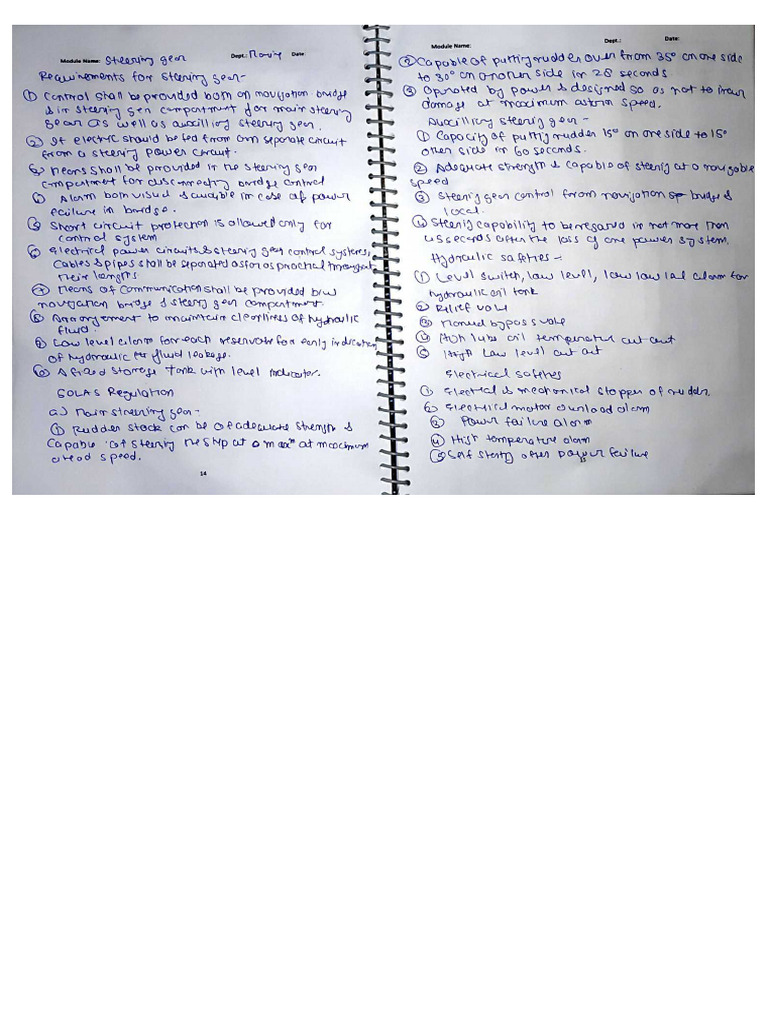 Module Name: Steering gear Dept.: Marine Date:
Requirements for steering gear-
① Control shall be provided both on navigation bridge
& in steering gear compartment for main steering
gear as well as auxilliary steering gear.
② If electric should be fed from own separate circuit
from a steering power circuit.
③ Means shall be provided in the steering gear
compartment for disconnecting bridge control
④ Alarm both visual & audible in case of power
failure in bridge.
⑤ Short circuit protection is allowed only for
control system
⑥ Electrical power circuits & steering gear control systems,
cables & pipes shall be separated as far as practical throughout
their lengths
⑦ Means of communication shall be provided b/w
navigation bridge & steering gear compartment.
⑧ Arrangement to maintain cleanliness of hydraulic
fluid.
⑨ Low level alarm for each reservoir for early indication
of hydraulic fluid leakage.
⑩ A fixed storage tank with level indicator.
SOLAS Regulation
a) Main steering gear-
① Rudder stock can be of adequate strength &
capable of steering the ship at a maxm at maximum
ahead speed.
14
Module Name: Dept.: Date:
② Capable of putting rudder over from 35° on one side
to 30° on another side in 28 seconds.
③ Operated by power & designed so as not to incur
damage at maximum astern speed.
Auxilliary steering gear-
① Capacity of putting rudder 15° on one side to 15°
other side in 60 seconds.
② Adequate strength & capable of steering at a navigable
speed
③ Steering gear control from navigation bridge &
local.
④ Steering capability to be regained in not more than
45 seconds after the loss of one power system.
Hydraulic safties-
① Level switch, low level, low low level alarm for
hydraulic oil tank
② Relief valve
③ Manual bypass valve
④ High lube oil temperature cut out
⑤ High Low level cut out
Electrical safties
① Electrical & mechanical stopper of rudder.
② Electrical motor overload alarm
③ Power failure alarm
④ High temperature alarm
⑤ Self starting after power failure